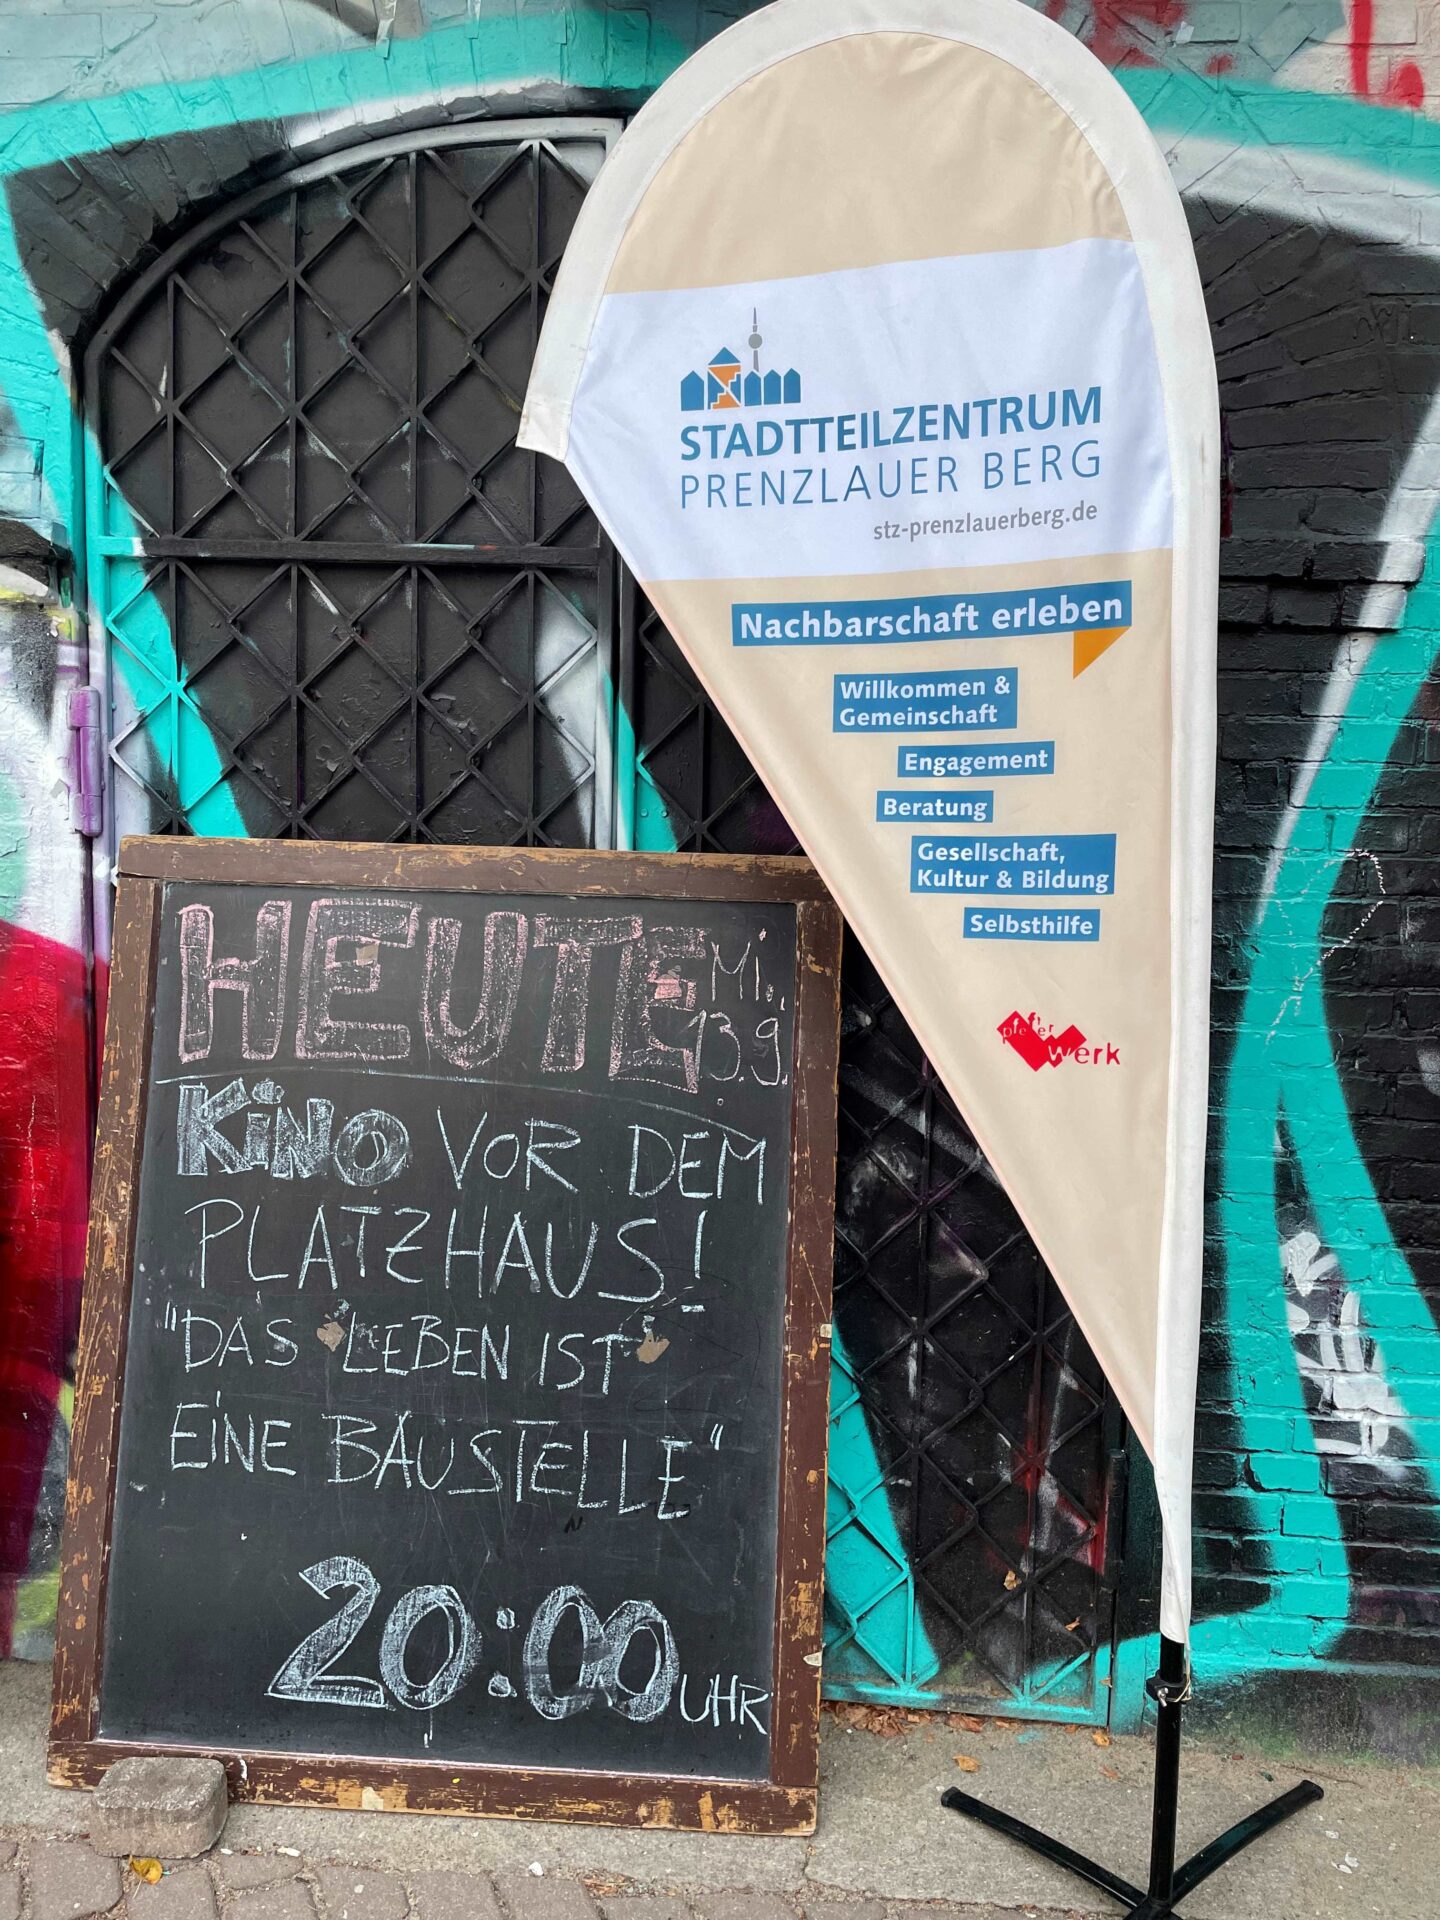 STADTTEILZENTRUM
PRENZLAUER BERG
stz-prenzlauerberg.de
Nachbarschaft erleben
Willkommen &
Gemeinschaft
Engagement
Beratung
Gesellschaft,
Kultur & Bildung
Selbsthilfe
pfeffer
werk
HEUTE Mi.,
13.9.
KiNO VOR DEM
PLATZHAUS!
"DAS LEBEN IST
EiNE BAUSTELLE"
20:00 UHR